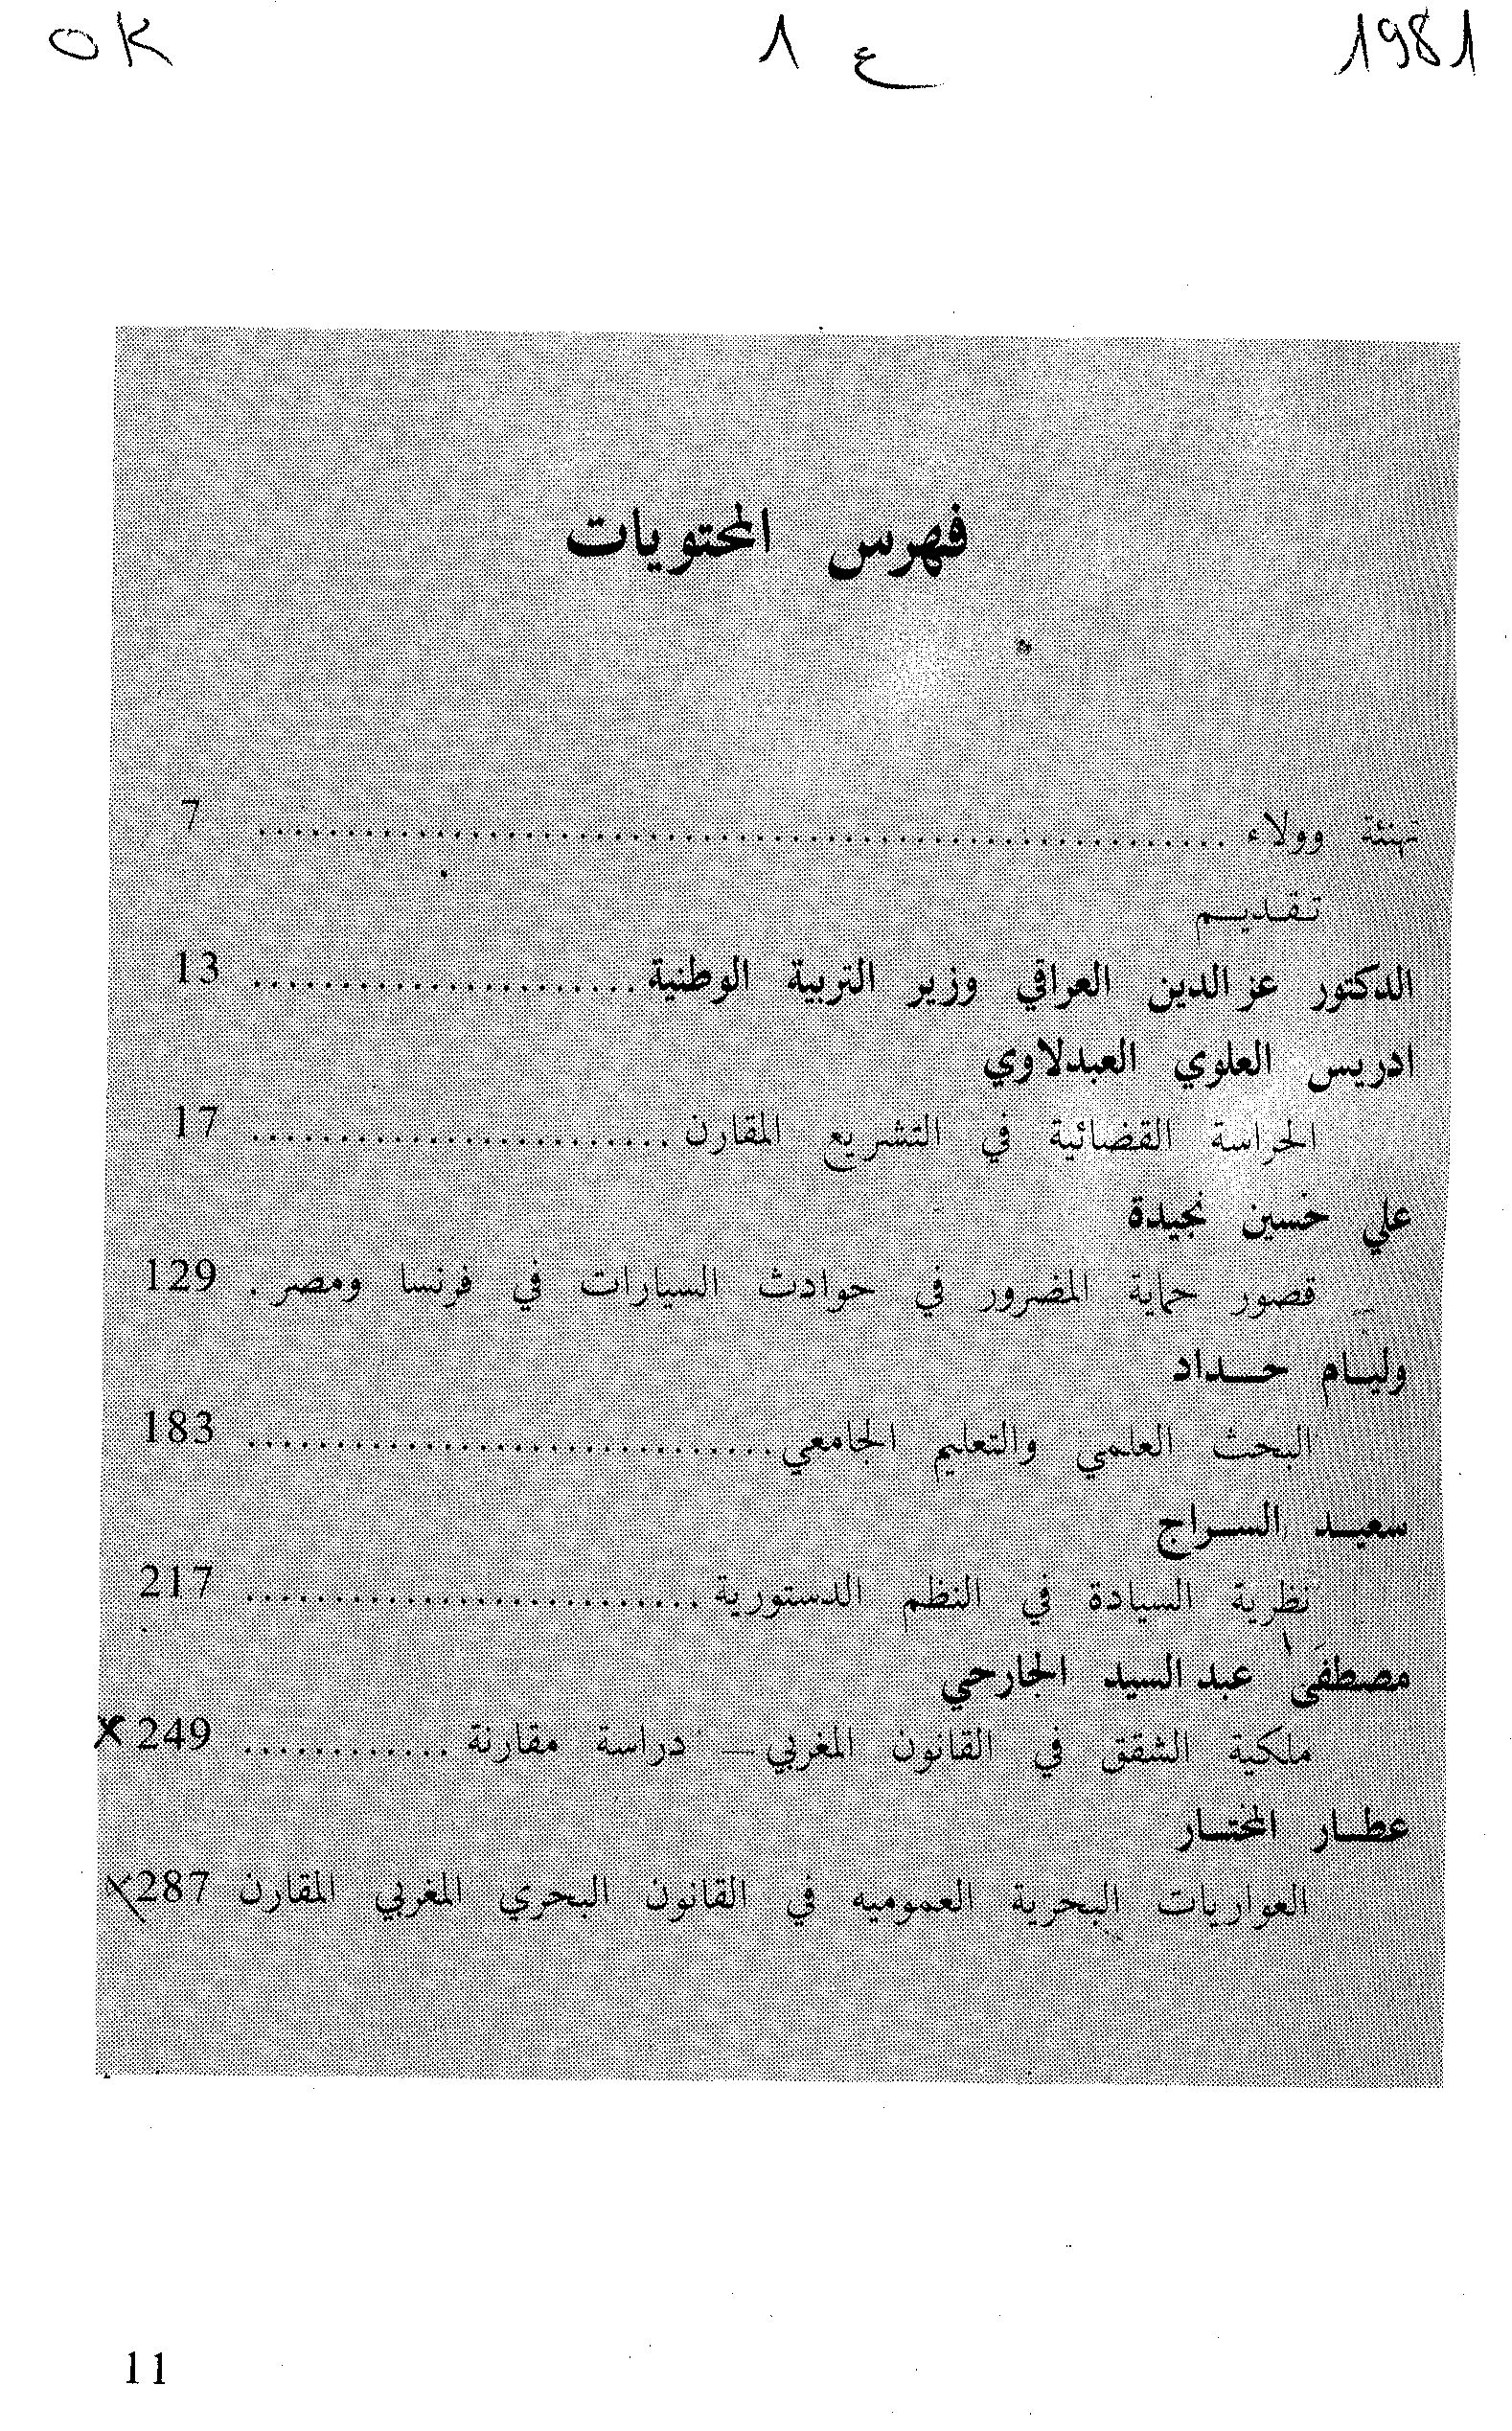 1981 ع 1 OK
فهرس المحتويات
تهنئة وولاء ........................................ 7
تـقـديـم
الدكتور عز الدين العراقي وزير التربية الوطنية ...................... 13
ادريس العلوي العبدلاوي
الحراسة القضائية في التشريع المقارن ........................ 17
علي حسين نجيدة
قصور حماية المضرور في حوادث السيارات في فرنسا ومصر . 129
وليـام حـداد
البحث العلمي والتعليم الجامعي .............................. 183
سعيـد السـراج
نظرية السيادة في النظم الدستورية .......................... 217
مصطفى عبد السيد الجارحي
ملكية الشقق في القانون المغربي — دراسة مقارنة ............ 249 X
عطـار المختـار
العواريات البحرية العموميه في القانون البحري المغربي المقارن 287 X
11